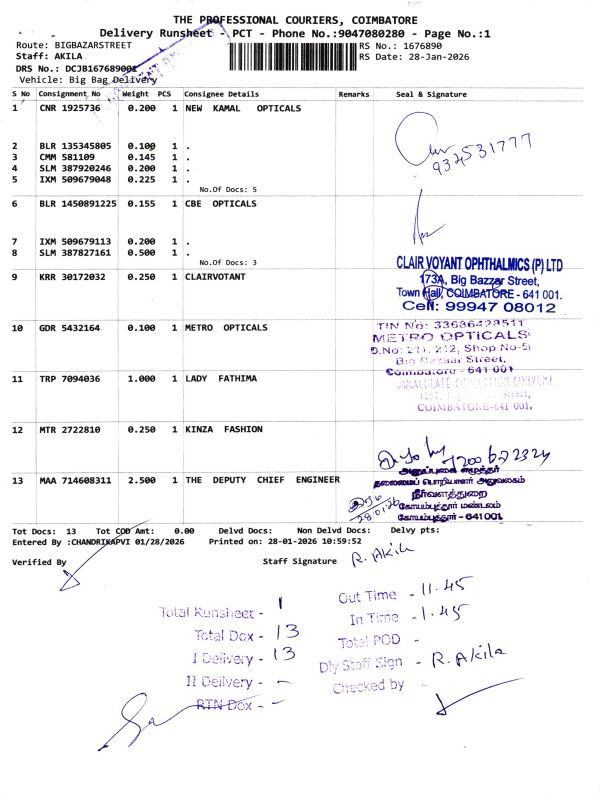 THE PROFESSIONAL COURIERS, COIMBATORE
Delivery Runsheet - PCT - Phone No.:9047080280 - Page No.:1
Route: BIGBAZARSTREET
RS No.: 1676890
Staff: AKILA
RS Date: 28-Jan-2026
DRS No.: DCJB167689001
Vehicle: Big Bag Delivery
S No Consignment No Weight PCS Consignee Details Remarks Seal & Signature
1 CNR 1925736 0.200 1 NEW KAMAL OPTICALS
934531777
2 BLR 135345805 0.100 1 .
3 CMM 581109 0.145 1 .
4 SLM 387920246 0.200 1 .
5 IXM 509679048 0.225 1 .
No.Of Docs: 5
6 BLR 1450891225 0.155 1 CBE OPTICALS
7 IXM 509679113 0.200 1 .
8 SLM 387827161 0.500 1 .
No.Of Docs: 3
CLAIR VOYANT OPHTHALMICS (P) LTD
173A, Big Bazzar Street,
Town Hall, COIMBATORE - 641 001.
Cell: 99947 08012
9 KRR 30172032 0.250 1 CLAIRVOTANT
10 GDR 5432164 0.100 1 METRO OPTICALS
TIN No: 33686423511
METRO OPTICALS
D.No: 211, 212, Shop No-5
Big Bazaar Street,
Coimbatore - 641 001
11 TRP 7094036 1.000 1 LADY FATHIMA
IMMACULATE CONCEPTION CONVENT
COIMBATORE-641 001.
12 MTR 2722810 0.250 1 KINZA FASHION
13 MAA 714608311 2.500 1 THE DEPUTY CHIEF ENGINEER
அனுப்புகை எழுத்தர்
தலைமைப் பொறியாளர் அலுவலகம்
நீர்வளத்துறை
கோயம்புத்தூர் மண்டலம்
கோயம்புத்தூர் - 641001
28.01.26
Tot Docs: 13 Tot COD Amt: 0.00 Delvd Docs: Non Delvd Docs: Delvy pts:
Entered By :CHANDRIKAPVI 01/28/2026 Printed on: 28-01-2026 10:59:52
Verified By Staff Signature R. Akila
Total Runsheet - 1
Total Dox - 13
I Delivery - 13
II Delivery - -
RTN Dox - -
Out Time - 11.45
In Time - 1.45
Total POD -
Dly Staff Sign - R. Akila
Checked by -